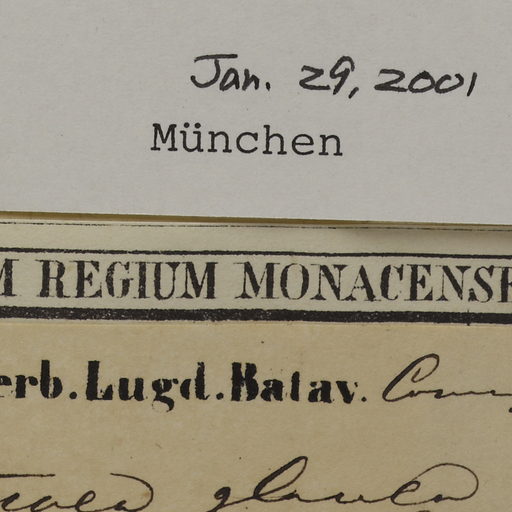 Jan. 29, 2001
München
M REGIUM MONACENSE
erb.Lugd.Batav.
glauca